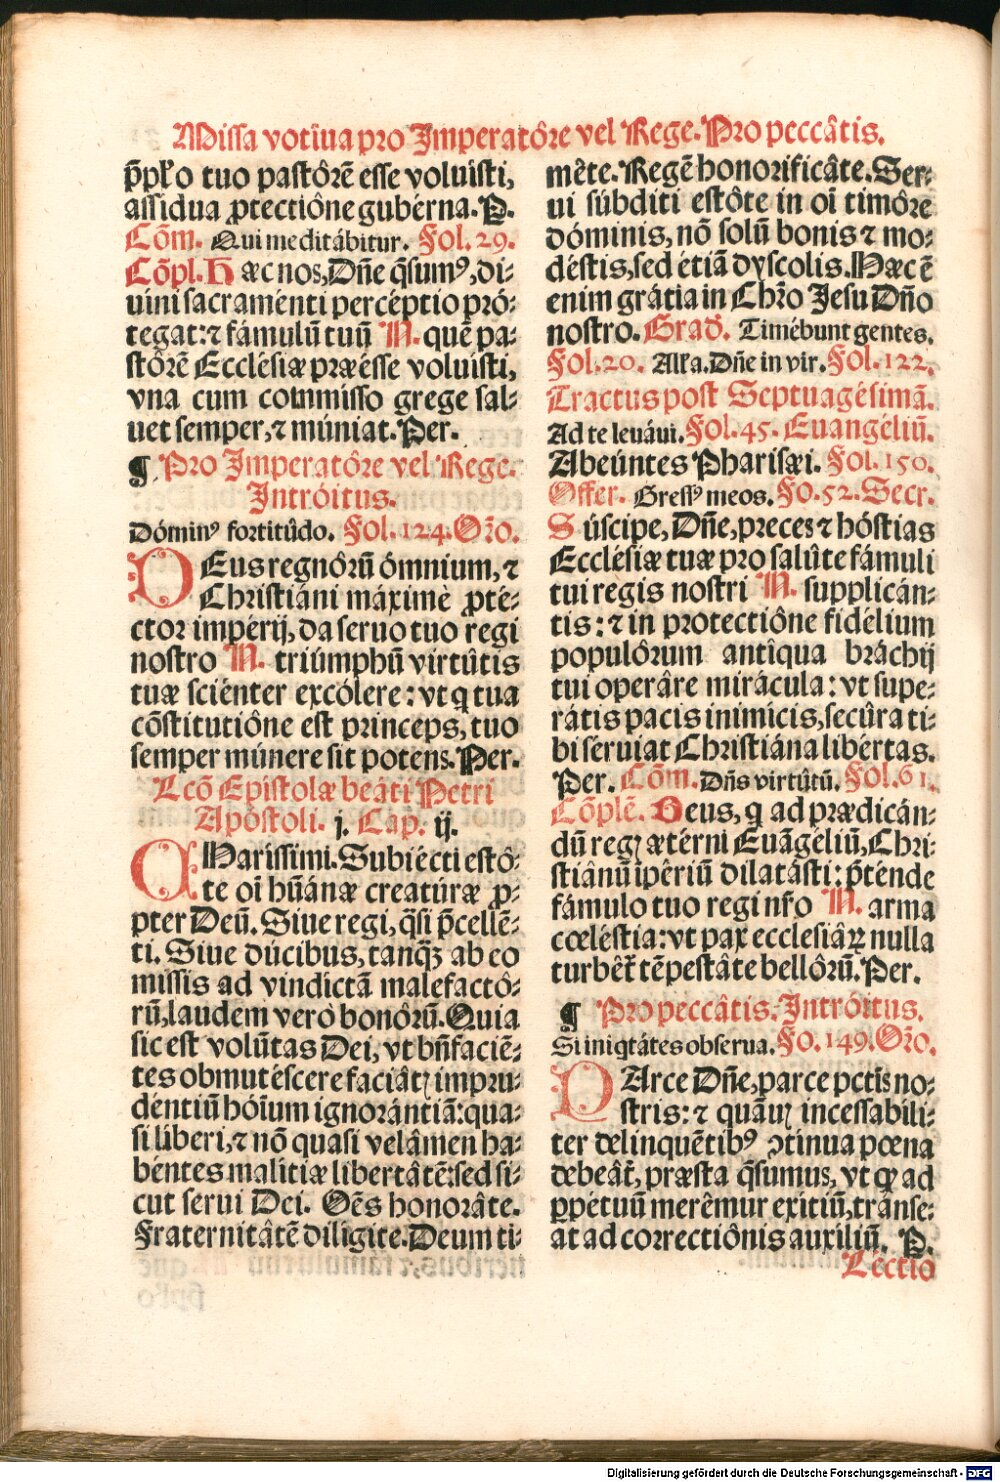 Missa votîua pro Imperatôre vel Rege. Pro peccâtis.
p̄pľo tuo pastôrē esse voluisti,
assidua ꝓtectiône gubérna. P.
Cōm. Qui meditâbitur. Fol. 29.
Cōpl. Hæc nos, Dñe q̄sumꝰ, di-
uini sacraménti percéptio pró-
tegat: ⁊ fámulū tuū N. quē pa-
stôrē Ecclésiæ præésse voluisti,
vna cum commisso grege sal-
uet semper, ⁊ múniat. Per.
¶ Pro Imperatôre vel Rege.
Intróitus.
Dóminꝰ fortitûdo. Fol. 124. Orō.
DEus regnôrū ómnium, ⁊
Christiáni máximè ꝓté-
ctor impérij, da seruo tuo regi
nostro N. triúmphū virtûtis
tuæ sciénter excólere: vt q̄ tua
cōstitutiône est princeps, tuo
semper múnere sit potens. Per.
Lcō Epistolæ beáti Petri
Apóstoli. j. Cap. ij.
CHaríssimi. Subiécti estô-
te oī hūánæ creatúræ ꝓ-
pter Deū. Siue regi, q̄si p̄cellē-
ti. Siue dúcibus, tanqꝫ ab eo
missis ad vindíctā malefactô-
rū, laudem verò bonôrū. Quia
sic est volūtas Dei, vt bn̄faciē-
tes obmutéscere faciâtꝭ impru-
déntiū hóīum ignorántiā: qua-
si liberi, ⁊ nō quasi velâmen ha-
béntes malítiæ libertâtē: sed si-
cut serui Dei. Oēs honorâte.
Fraternitâtē dilígite. Deum ti-
mête. Regē honorificâte. Ser-
ui súbditi estôte in oī timôre
dóminis, nō solū bonis ⁊ mo-
déstis, sed étiā dyscolis. Hæc ē
enim grátia in Chrō Jesu Dño
nostro. Grad̄. Timébunt gentes.
Fol. 20. Alľa. Dñe in vir. Fol. 122.
Tractus post Septuagésimā.
Ad te leuáui. Fol. 45. Euangéliū.
Abeúntes Pharisæi. Fol. 150.
Offer. Gressꝰ meos. Fo. 52. Secr.
Súscipe, Dñe, preces ⁊ hóstias
Ecclésiæ tuæ pro salûte fámuli
tui regis nostri N. supplicán-
tis: ⁊ in protectiône fidélium
populôrum antîqua bráchij
tui operâre mirácula: vt supe-
rátis pacis inimícis, secûra ti-
bi séruiat Christiána libértas.
Per. Cōm. Dñs virtûtū. Fol. 61.
Cōplē. Deus, q̄ ad prædicán-
dū regꝭ ætérni Euāgéliū, Chri-
stiânū īpériū dilatásti: p̄ténde
fámulo tuo regi nr̄o N. arma
cœléstia: vt pax ecclesiâꝝ nulla
turbēt̄ tēpestâte bellôrū. Per.
¶ Pro peccâtis. Intróitus.
Si iniqtátes obserua. Fo. 149. Orō.
PArce Dñe, parce pctīs no-
stris: ⁊ quāuꝭ incessabili-
ter delinquētibꝰ ↄtinua pœna
debeât̄, præsta q̄sumus, vt qđ ad
ꝑpétuū merêmur exítiū, tránse-
at ad correctiônis auxíliū. P.
Léctio